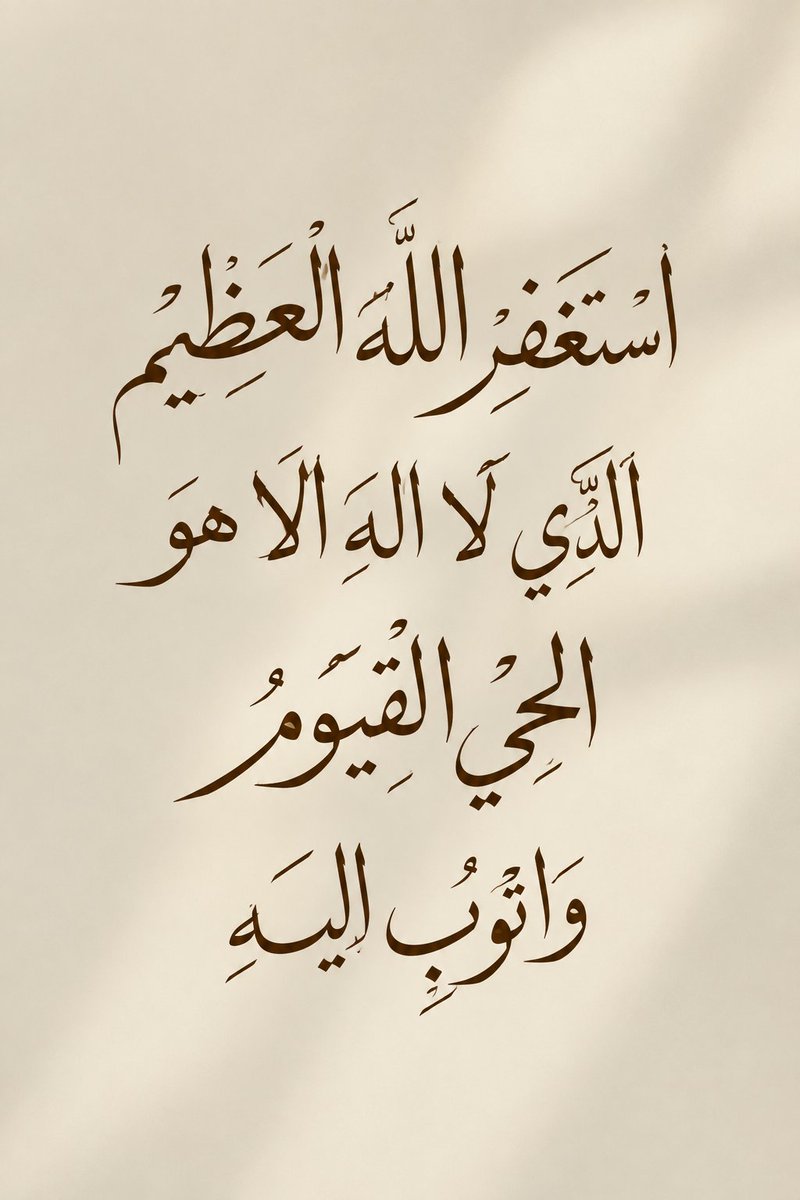 أسْتَغفِرْ اللَّهُ الْعَظِيْم
الَدَِّي لَا الهَِ الَا هوَ
الحِْي الْقِيَومُ
وَاتْوُبِ اليَهِ